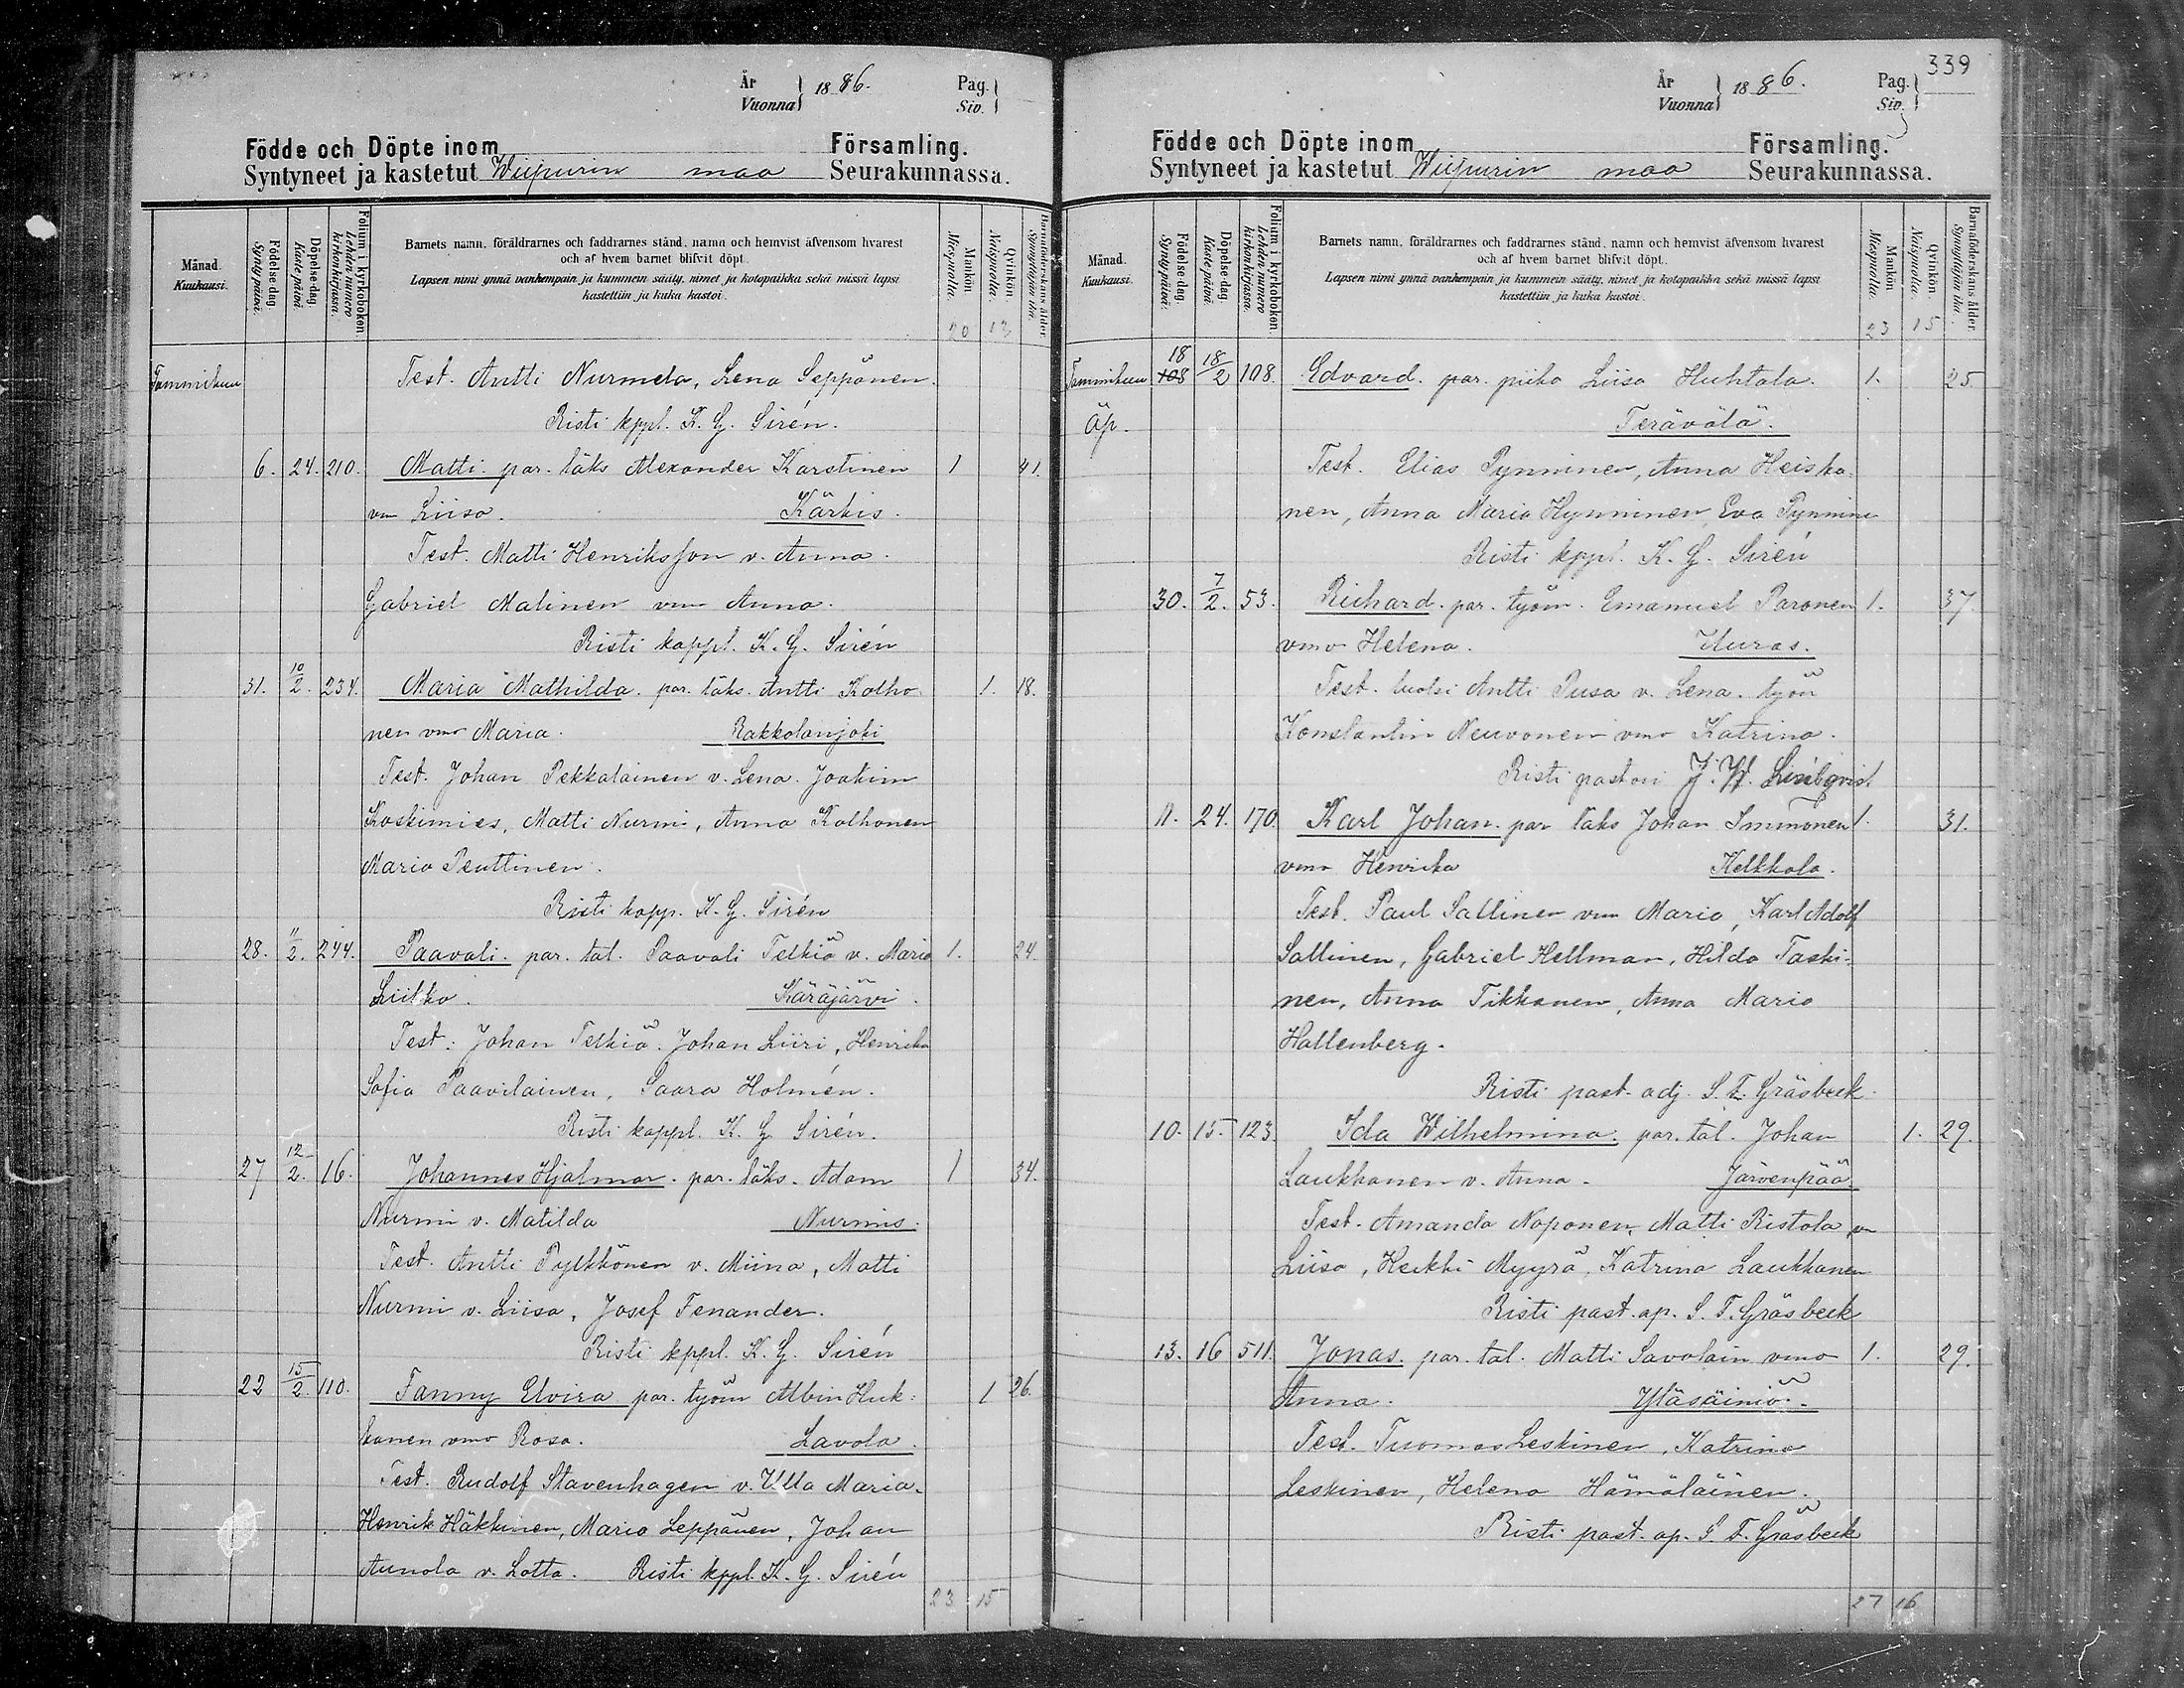 År
Vuonna } 1886. Pag.
Siv. }
Födde och Döpte inom Församling.
Syntyneet ja kastetut Wiipurin maa Seurakunnassa.
Månad.
Kuukausi.
Födelse dag.
Synty päivä.
Döpelse dag.
Kaste päivä.
Folium i kyrkoboken.
Lehden numero kirkonkirjassa.
Barnets namn, föräldrarnes och faddrarnes stånd, namn och hemvist äfvensom hvarest
och af hvem barnet blifvit döpt.
Lapsen nimi ynnä vanhempain ja kummein sääty, nimet ja kotopaikka sekä missä lapsi
kastettiin ja kuka kastoi.
Mankön.
Miespuolia.
Qvinkön.
Naispuolia.
Barnaföderskans ålder.
Synnyttäjän ikä.
20 13
Tammikuu Test. Antti Nurmela, Lena Seppänen.
Risti kppl. K. G. Sirén.
6. 24. 210. Matti. par. läks Alexander Karstinen 1 41.
vm Liisa. Kärkis.
Test. Matti Henriksson v. Anna.
Gabriel Malinen vm Anna.
Risti kappl. K. G. Sirén
31. 10/2. 234. Maria Mathilda. par. läks. Antti Kolho- 1. 18.
nen vmo Maria. Rakkolanjoki
Test. Johan Pekkalainen v. Lena. Joakim
Koskimies, Matti Nurmi, Anna Kolhonen
Maria Penttinen.
Risti kapp. K. G. Sirén
28. 11/2. 244. Paavali. par. tal. Paavali Telkiä v. Maria 1. 24
Liitko. Käräjärvi.
Test: Johan Telkiä. Johan Liiri, Henrika
Sofia Paavilainen, Saara Holmén.
Risti kappl. K. G. Sirén.
27 12/2. 16. Johannes Hjalmar. par. läks. Adam 1 34.
Nurmi v. Matilda Nurmis.
Test. Antti Pylkkönen v. Miina, Matti
Nurmi v. Liisa, Josef Fenander.
Risti kppl. K. G. Sirén
22 15/2. 110. Fanny Elvira par. työm Albin Huk- 1 26.
kanen vmo Rosa. Lavola.
Test. Rudolf Stavenhagen v. Ulla Maria.
Henrik Häkkinen, Maria Leppänen, Johan
Aunola v. Lotta. Risti kppl. K. G. Sirén
23 15
339
År
Vuonna } 1886. Pag.
Siv. }
Födde och Döpte inom Församling.
Syntyneet ja kastetut Wiipurin maa Seurakunnassa.
Månad.
Kuukausi.
Födelse dag.
Synty päivä.
Döpelse dag.
Kaste päivä.
Folium i kyrkoboken.
Lehden numero kirkonkirjassa.
Barnets namn, föräldrarnes och faddrarnes stånd, namn och hemvist äfvensom hvarest
och af hvem barnet blifvit döpt.
Lapsen nimi ynnä vanhempain ja kummein sääty, nimet ja kotopaikka sekä missä lapsi
kastettiin ja kuka kastoi.
Mankön.
Miespuolia.
Qvinkön.
Naispuolia.
Barnaföderskans ålder.
Synnyttäjän ikä.
23 15
Tammikuu 18 108 18/2 108. Edvard. par. piika Liisa Huhtala. 1. 25.
Äp. Terävälä.
Test. Elias Pynninen, Anna Heiska-
nen, Anna Maria Hynninen, Eva Pynnine
Risti kppl. K. G. Sirén
30. 7/2. 53. Richard. par. työm. Emanuel Paronen 1. 37.
vmo Helena. Uuras.
Test. luotsi Antti Pusa v. Lena. työm
Konstantin Neuvonen vmo Katrina.
Risti pastori J. W. Lindqvist
11. 24. 170. Karl Johan. par läks Johan Immonen 1. 31.
vmo Henrika Kelkkala.
Test. Paul Sallinen vm Maria, Karl Adolf
Sallinen, Gabriel Hellman, Hilda Taski-
nen, Anna Tikkanen, Anna Maria
Hallenberg.
Risti past. adj. S. F. Gräsbeck.
10. 15. 123. Ida Wilhelmina. par. tal. Johan 1. 29.
Laukkanen v. Anna. Järvenpää.
Test. Amanda Naponen, Matti Ristola vm
Liisa, Heikki Myyrä, Katrina Laukkanen
Risti past. ap. S. F. Gräsbeck
13. 16 511. Jonas. par. tal. Matti Savolain vmo 1. 29.
Anna. Yläsäiniö.
Test. Tuomas Leskinen, Katrina
Leskinen, Helena Hämäläinen.
Risti past. ap. S. F. Gräsbeck
27 16